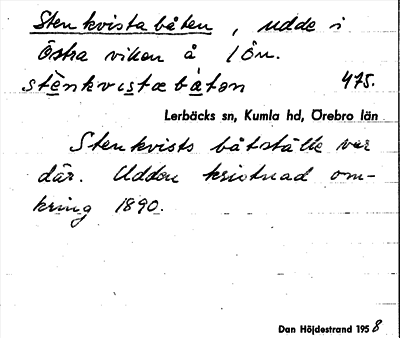 Stenkvistabåten, udde i
Östra viken å /Ön.
stènkvistæbåtən 475.
Lerbäcks sn, Kumla hd, Örebro län
Stenkvists båtställe var
där. Udden kristnad om-
kring 1890.
Dan Höjdestrand 1958